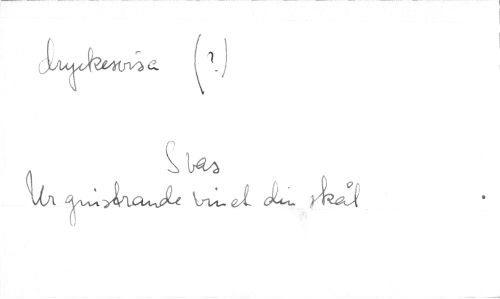 dryckesvisa (?)
Svas
Ur gnistrande vinet din skål